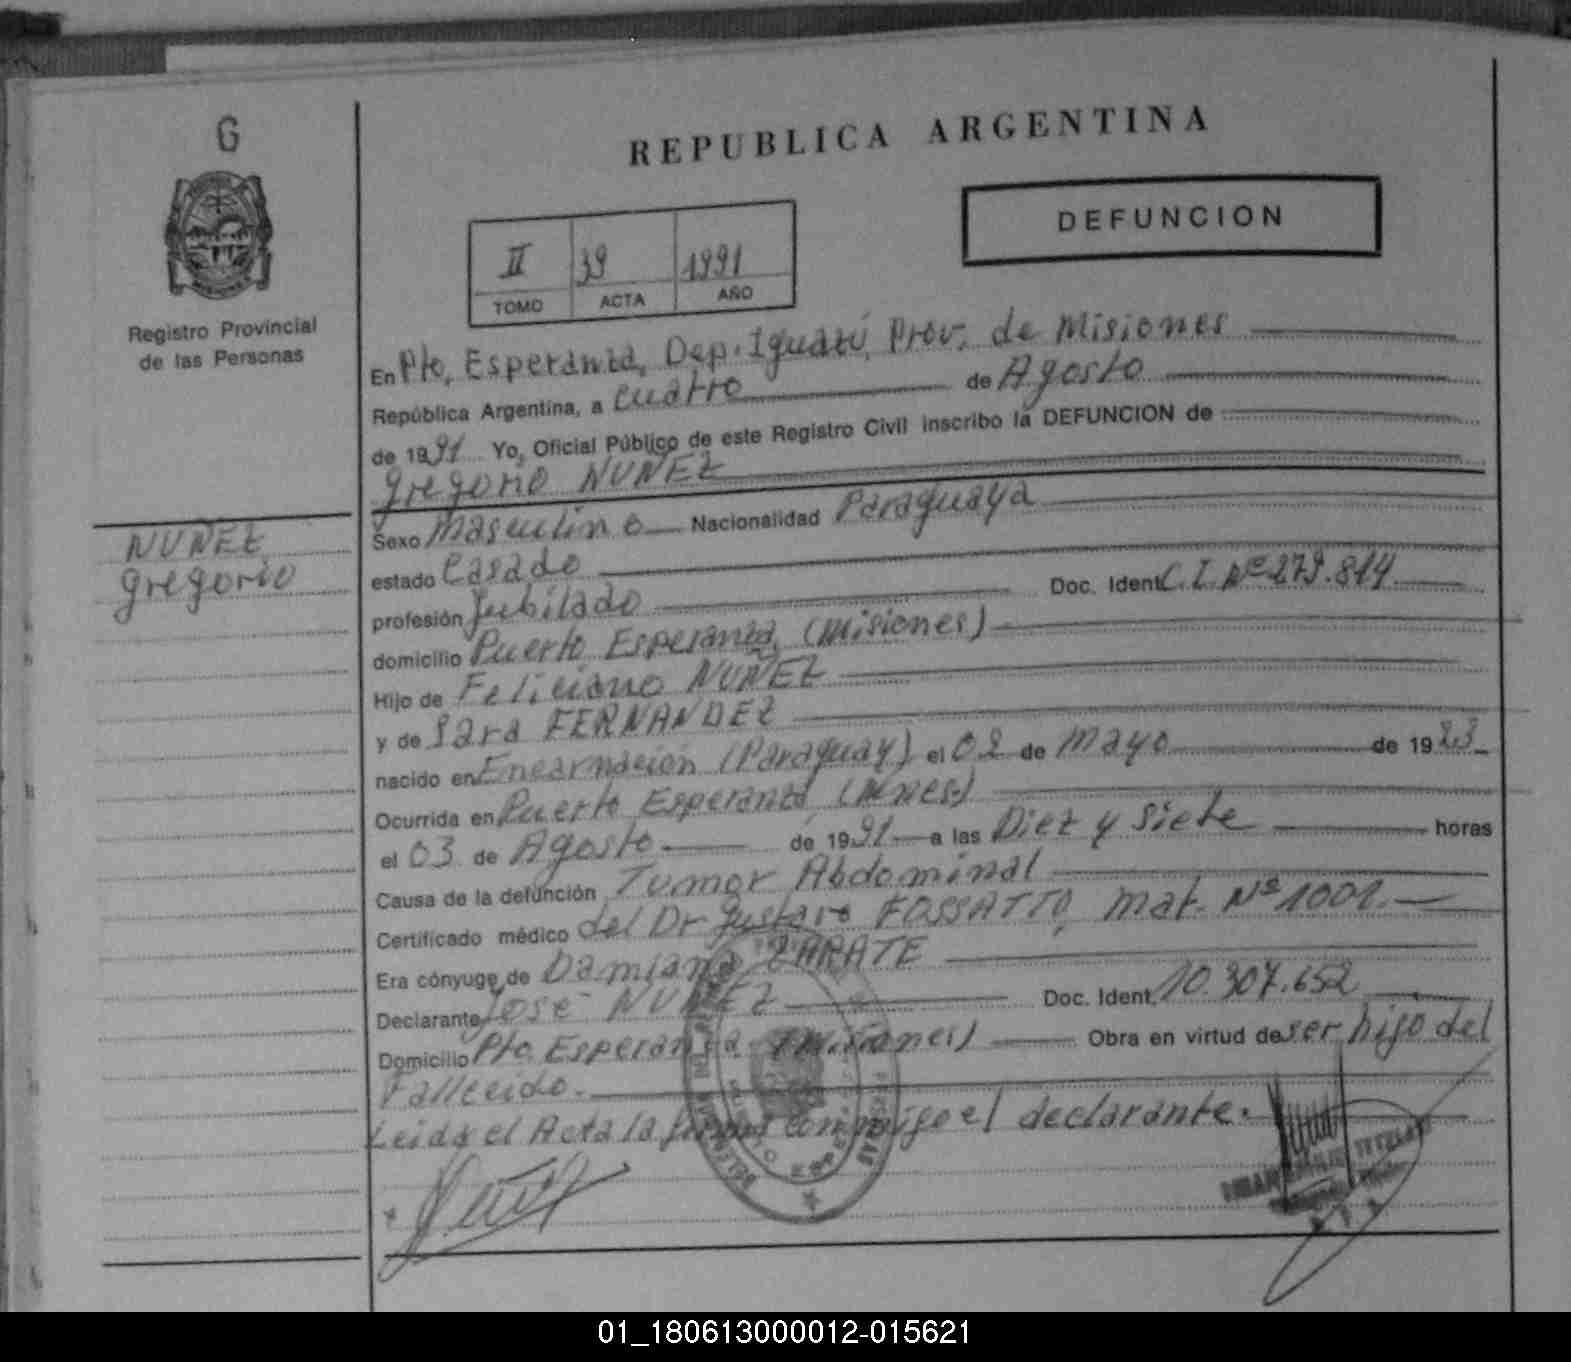 G
REPUBLICA ARGENTINA
DEFUNCION
II 39 1991
TOMO ACTA AÑO
Registro Provincial
de las Personas
En Pto, Esperanza, Dep. Iguazú, Prov. de Misiones
República Argentina, a cuatro de Agosto
de 1991 Yo, Oficial Público de este Registro Civil inscribo la DEFUNCION de
Gregorio NUÑEZ
NUÑEZ
Gregorio
Sexo Masculino Nacionalidad Paraguaya
estado Casado
profesión Jubilado Doc. Ident. C.I. Nº 279.814
domicilio Puerto Esperanza, (Misiones)
Hijo de Feliciano NUÑEZ
y de Sara FERNANDEZ
nacido en Encarnación (Paraguay) el 02 de Mayo de 1923
Ocurrida en Puerto Esperanza (Mnes.)
el 03 de Agosto de 1991 a las Diez y Siete horas
Causa de la defunción Tumor Abdominal
Certificado médico del Dr Gustavo FOSSATTO, Mat. Nº 1001.
Era cónyuge de Damiana ZARATE
Declarante José NUÑEZ Doc. Ident. 10.307.652
Domicilio Pto. Esperanza (Misiones) Obra en virtud de ser hijo del
Fallecido.
Leida el Acta la firma conmigo el declarante.
01_180613000012-015621